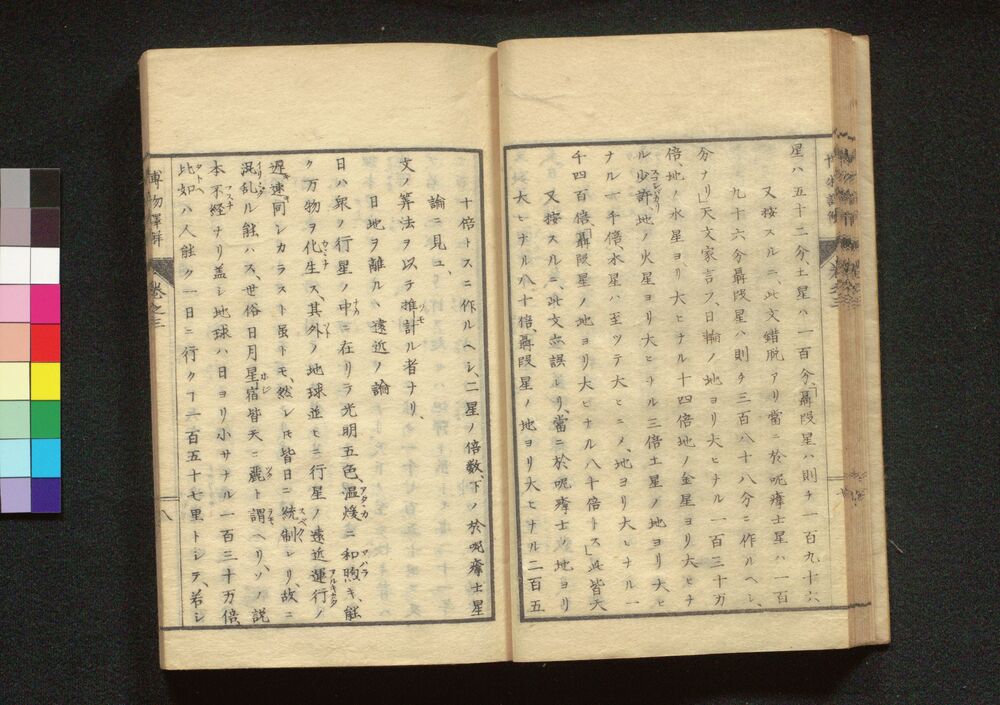 星ハ五十二分、土星ハ一百分、聶段星ハ則チ一百九十六
又按スルニ、此文錯脱アリ當ニ於呢瘴士星ハ一百
九十六分聶段星ハ則チ三百八十八分ニ作ルヘシ、
分ナリ」天文家言フ、日輪ノ地ヨリ大ヒナル一百三十万
倍、地ノ水星ヨリ大ヒナル十四倍地ノ金星ヨリ大ヒナ
ル少許地ノ火星ヨリ大ヒナル三倍土星ノ地ヨリ大ヒ
ナル一千倍、水星ハ至ツテ大ヒニメ、地ヨリ大ヒナル一
千四百倍、聶段星ノ地ヨリ大ヒナル八十倍トス」此皆天
又按スルニ、此文亦誤レリ、當ニ於呢瘴士ノ地ヨリ
大ヒナル八十倍、聶段星ノ地ヨリ大ヒナル二百五
十倍トスニ作ルヘシ、二星ノ倍数、下ノ於呢瘴士星
論ニ見ユ、
文ノ算法ヲ以テ推計ル者ナリ、
日地ヲ離ルヽ遠近ノ論
日ハ衆ノ行星ノ中ニ在リテ光明五色、温煖ニ和煦キ、能
ク万物ヲ化生ス、其外ノ地球並ヒニ行星ノ遠近運行ノ
遅速同シカラスト虽トモ、然レ𪜈皆日ニ統制レリ、故ニ
混乱ル能ハス、世俗日月星宿皆天ニ麗ト謂ヘリ、ソノ説
本不経ナリ盖シ地球ハ日ヨリ小サナル一百三十万倍、
比如ハ人能ク一日ニ行クヿ二百五十七里トシテ、若シ
博物通釋
巻之三
八